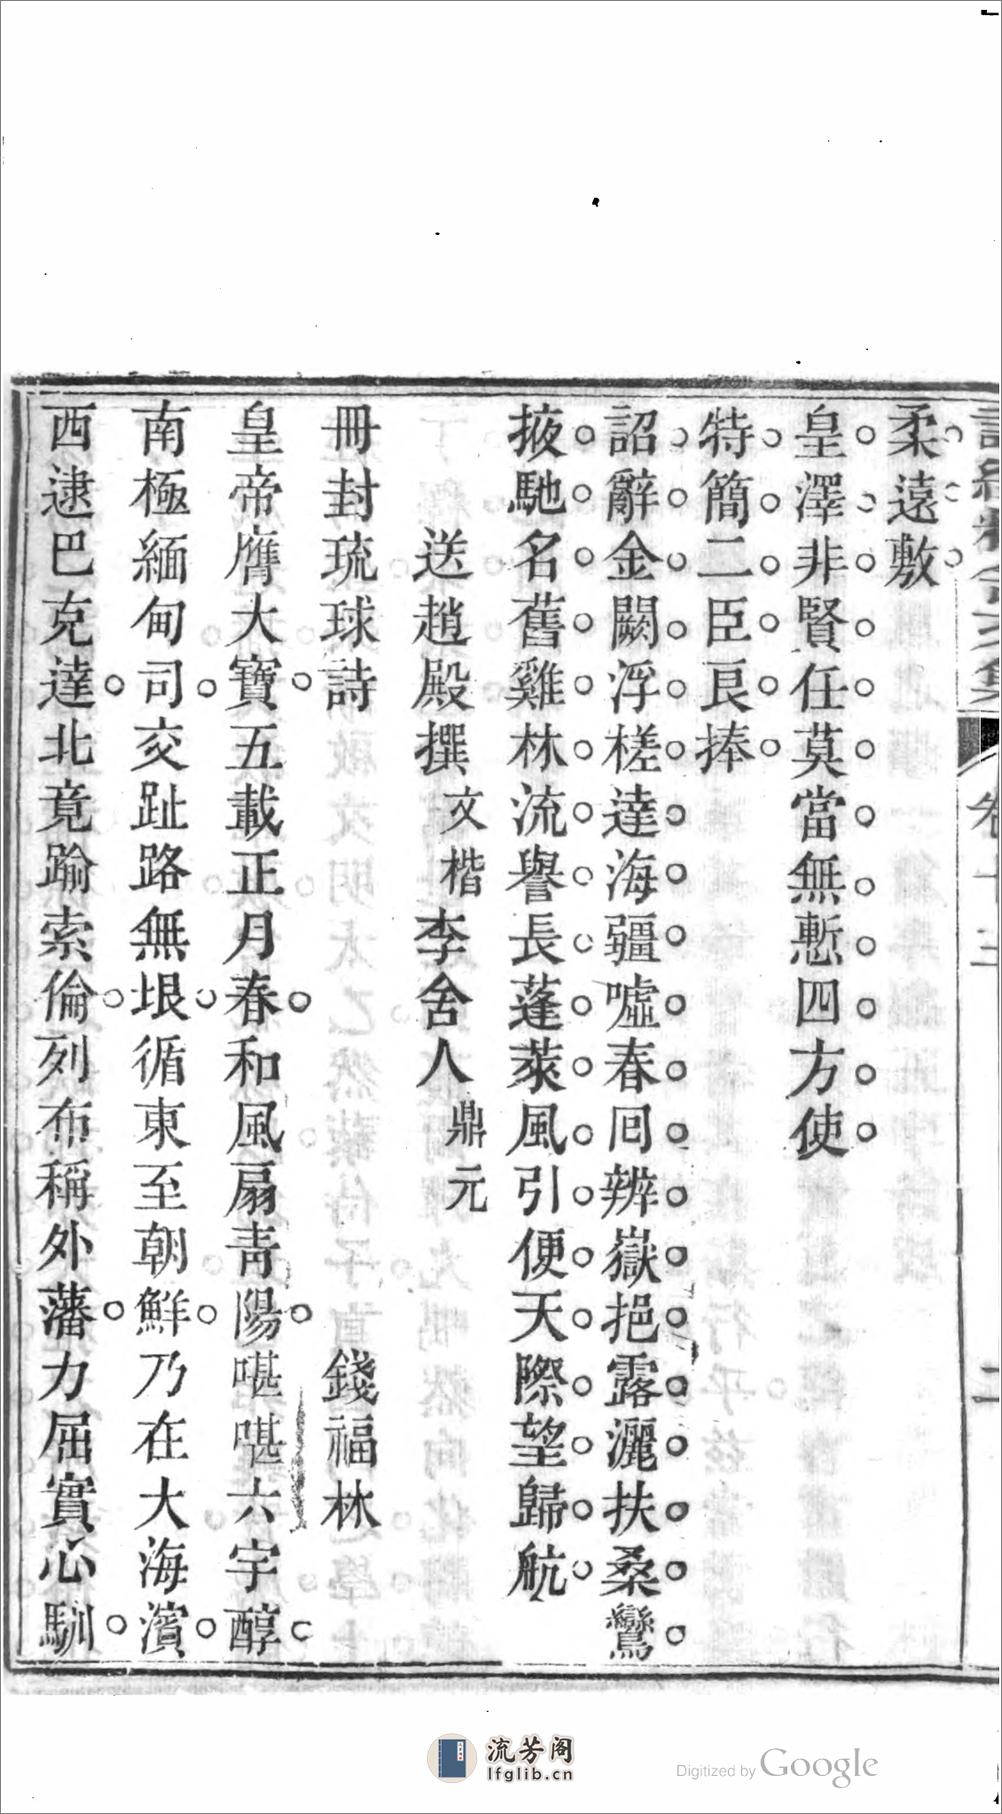 詁經精舍文集
卷十三
二
柔遠敷
皇澤非賢任莫當無慙四方使
特簡二臣良捧
詔辭金闕浮槎達海疆噓春回辨嶽挹露灑扶桑鸞
掖馳名舊雞林流譽長蓬萊風引便天際望歸航
送趙殿撰文楷李舍人鼎元
冊封琉球詩　錢福林
皇帝膺大寶五載正月春和風扇青陽啿啿六宇醇
南極緬甸司交趾路無垠循東至朝鮮乃在大海濱
西逮巴克達北竟踰索倫列布稱外藩力屈實心馴
流芳阁
lfglib.cn
Digitized by Google